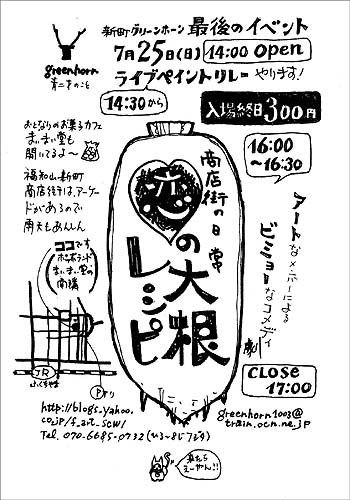 新町グリーンホーン 最後のイベント
7月25日(日) 14:00 open
greenhorn
青二才のこと
ライブペイントリレーやります!
14:30から
入場終日300円
おとなりのお菓子カフェ
まいまい堂も
開いてるよ〜
福知山新町
商店街は、アーケー
ドがあるので
雨天もあんしん
16:00
〜16:30
商店街の日常
恋の大根
レシピ
アートなメンバーによる
ビミョーなコメディ
ココです
まいまい堂の
南隣
JR
ふくちやま
Pあり
CLOSE
17:00
http://blogs.yahoo.
co.jp/f_art_scw/
Tel. 070-6685-0732(ひる〜8じです)
greenhorn1003@
train.ocn.ne.jp
来たら
えーやん!!